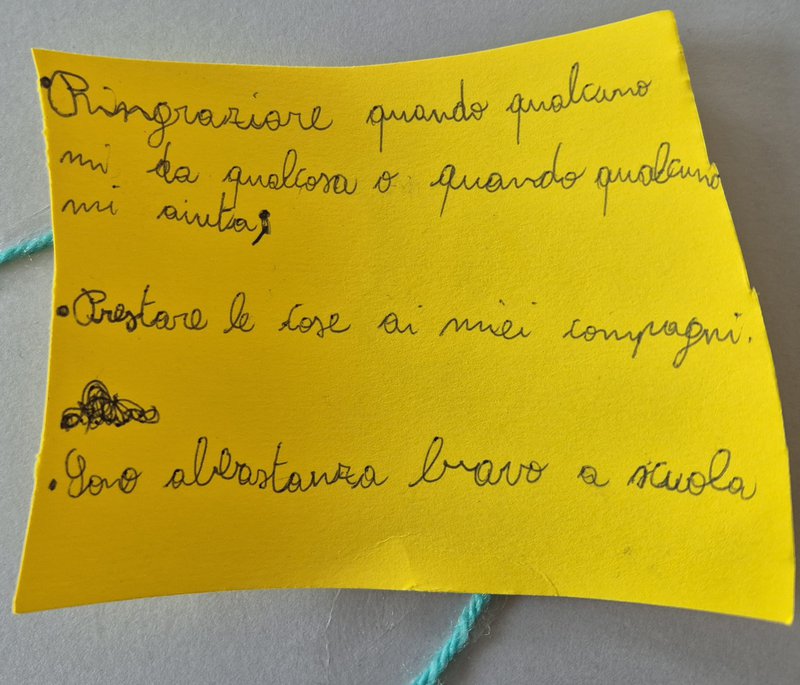 • Ringraziare quando qualcuno
mi da qualcosa o quando qualcuno
mi aiuta;
• Prestare le cose ai miei compagni.
• Sono abbastanza bravo a scuola